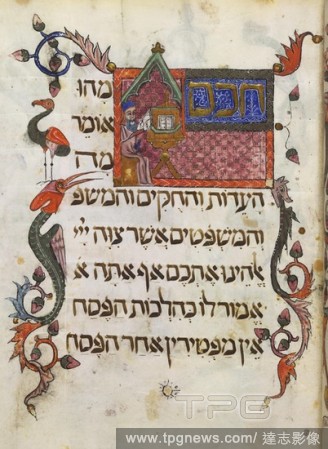 חכם
מהו
אומר
מה
העדות והחקים והמשפ
והמשפטים אשר צוה ייי
אלהינו אתכם אף אתה א
אמור לו כהלכות הפסח
אין מפטירין אחר הפסח
TPG
www.tpgnews.com/ 達志影像